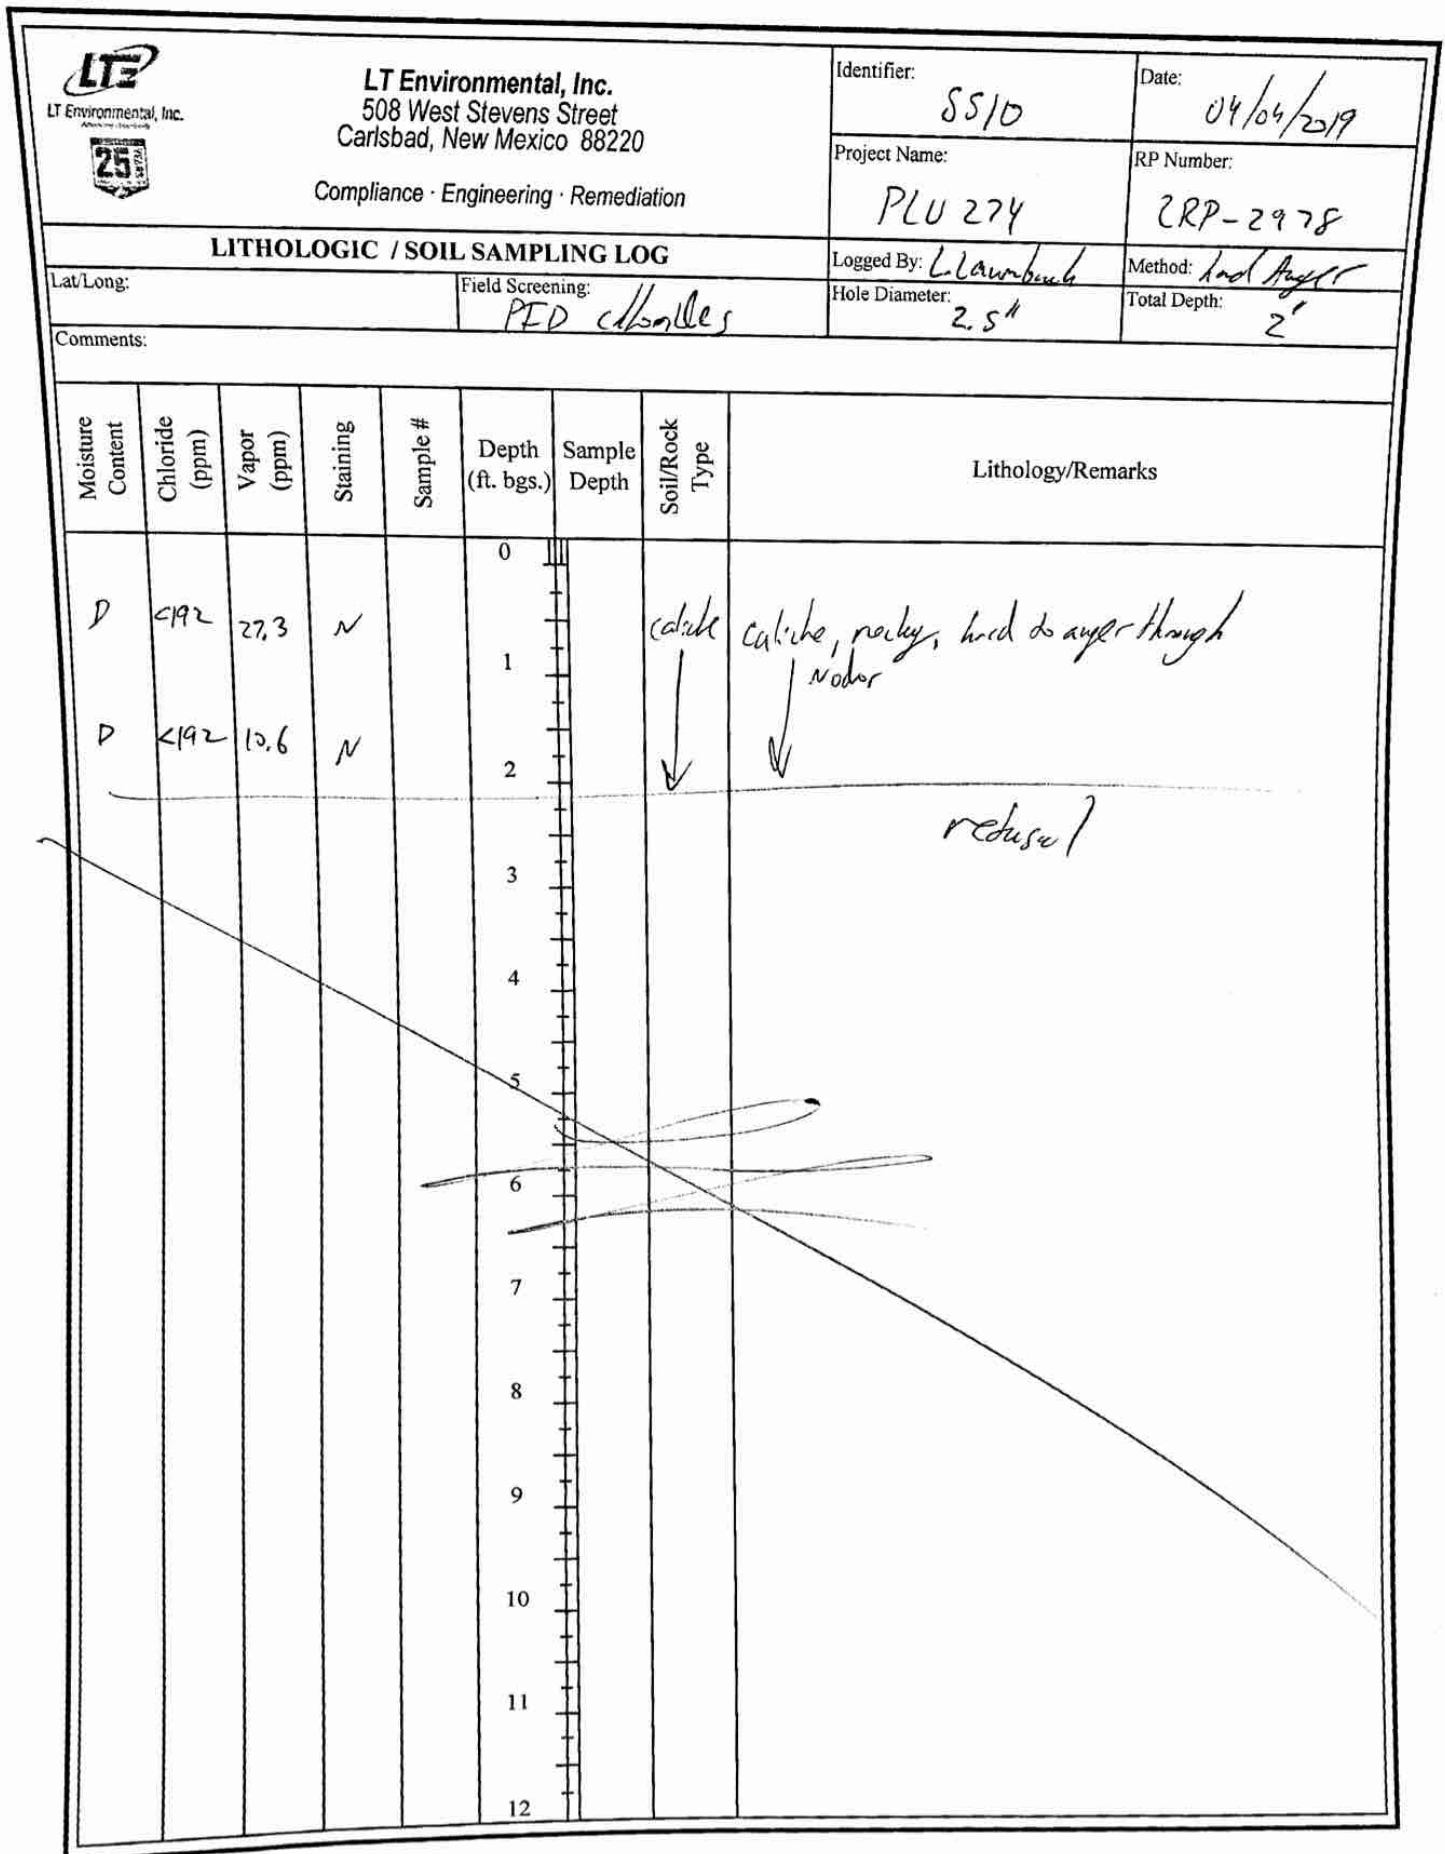 LTE
LT Environmental, Inc.
25 YEARS
LT Environmental, Inc.
508 West Stevens Street
Carlsbad, New Mexico 88220
Compliance · Engineering · Remediation
Identifier:
SS10
Date:
04/04/2019
Project Name:
PLU 274
RP Number:
2RP-2978
LITHOLOGIC / SOIL SAMPLING LOG
Logged By: L. Laumbach
Method: hand Auger
Lat/Long:
Field Screening:
PID chlorides
Hole Diameter:
2.5"
Total Depth:
2'
Comments:
Moisture Content
Chloride (ppm)
Vapor (ppm)
Staining
Sample #
Depth (ft. bgs.)
Sample Depth
Soil/Rock Type
Lithology/Remarks
0
D <192 27.3 N caliche caliche, rocky, hard to auger through
1
No odor
D <192 10.6 N
2
refusal
3
4
5
6
7
8
9
10
11
12